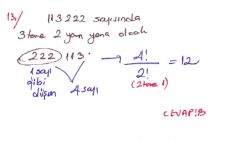 13/ 113222 sayısında
3 tane 2 yan yana olacak
222 113 → 4!/2! = 12
1 sayı gibi düşün
4 sayı
(2 tane 1)
CEVAP: B